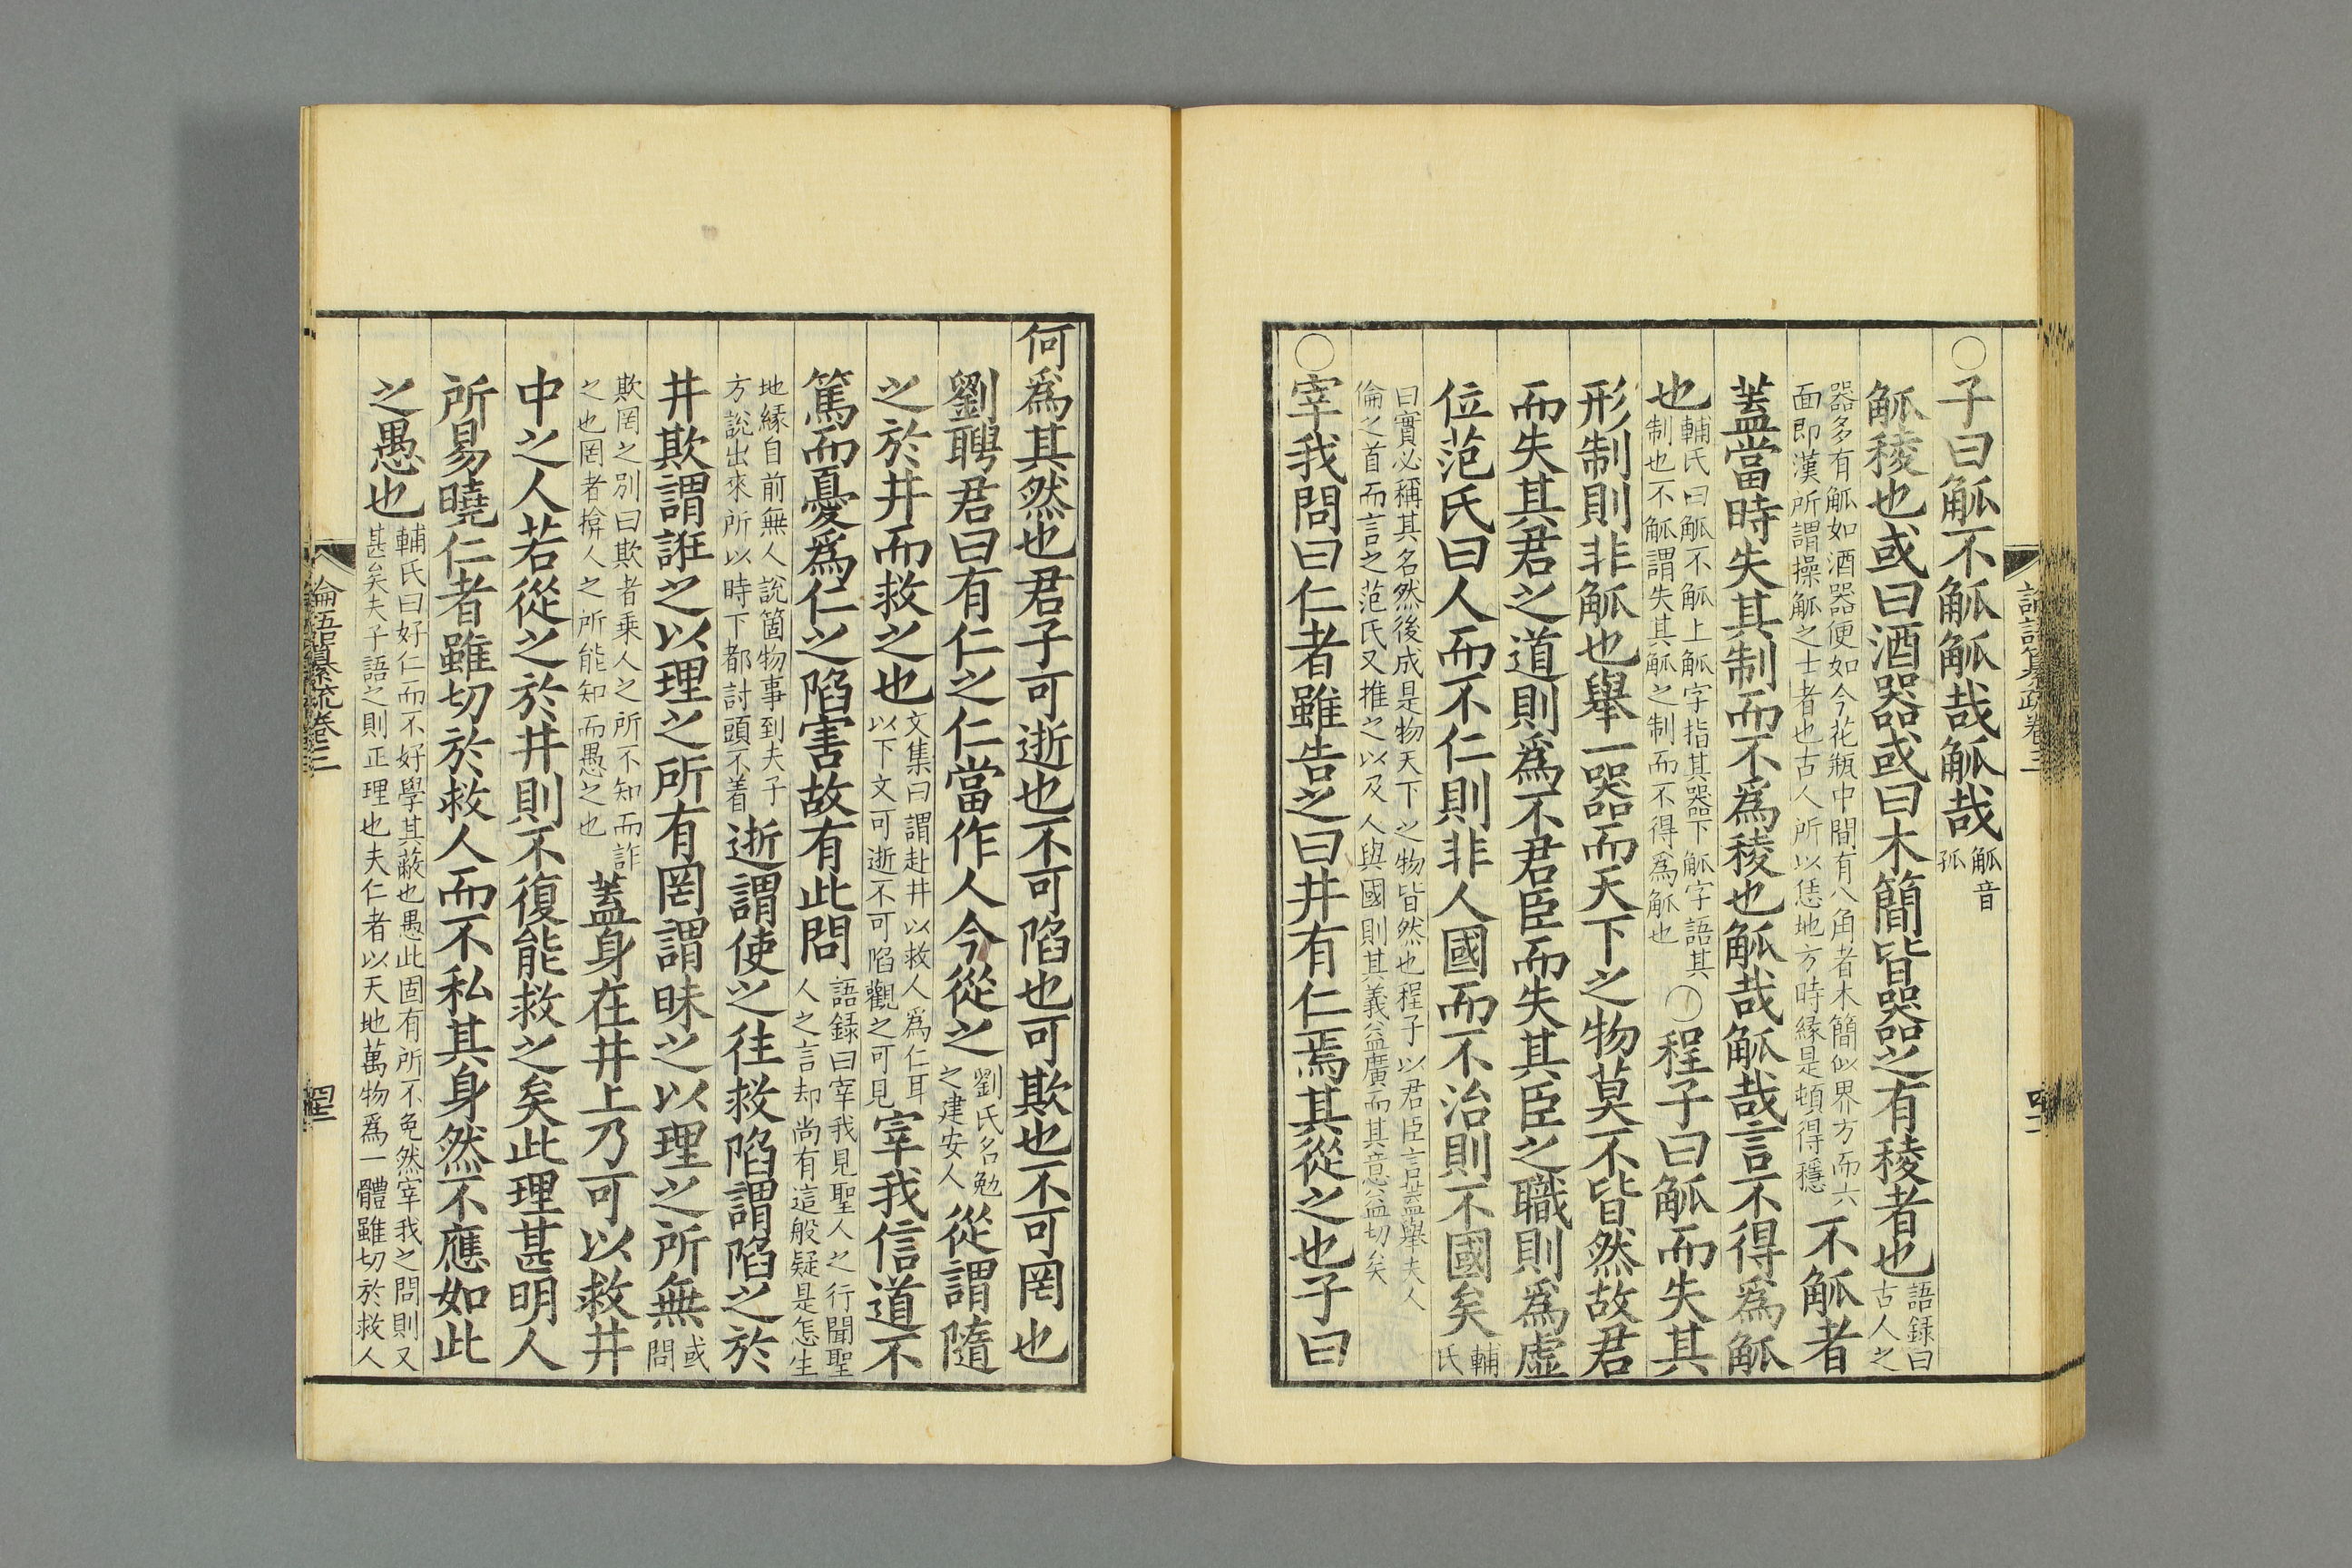 論語纂疏卷三
○子曰觚不觚觚哉觚哉觚音孤
觚稜也或曰酒器或曰木簡皆器之有稜者也語錄曰古人之
器多有觚如酒器便如今花瓶中間有八角者木簡似界方而六面即漢所謂操觚之士者也古人所以恁地方時緣是頓得穩不觚者
蓋當時失其制而不爲稜也觚哉觚哉言不得爲觚
也輔氏曰觚不觚上觚字指其器下觚字語其制也不觚謂失其觚之制而不得爲觚也○程子曰觚而失其
形制則非觚也舉一器而天下之物莫不皆然故君
而失其君之道則爲不君臣而失其臣之職則爲虛
位范氏曰人而不仁則非人國而不治則不國矣輔氏
曰實必稱其名然後成是物天下之物皆然也程子以君臣言蓋舉夫人倫之首而言之范氏又推之以及人與國則其義益廣而其意益切矣
○宰我問曰仁者雖告之曰井有仁焉其從之也子曰
何爲其然也君子可逝也不可陷也可欺也不可罔也
劉聘君曰有仁之仁當作人今從之劉氏名勉之建安人從謂隨
之於井而救之也文集曰謂赴井以救人爲仁耳以下文可逝不可陷觀之可見宰我信道不
篤而憂爲仁之陷害故有此問語錄曰宰我見聖人之行聞聖人之言却尚有這般疑是怎生
地緣自前無人說箇物事到夫子方說出來所以時下都討頭不着逝謂使之往救陷謂陷之於
井欺謂誑之以理之所有罔謂昧之以理之所無或問
欺罔之別曰欺者乘人之所不知而詐之也罔者揜人之所能知而愚之也蓋身在井上乃可以救井
中之人若從之於井則不復能救之矣此理甚明人
所易曉仁者雖切於救人而不私其身然不應如此
之愚也輔氏曰好仁而不好學其蔽也愚此固有所不免然宰我之問則又甚矣夫子語之則正理也夫仁者以天地萬物爲一體雖切於救人
論語纂疏卷三